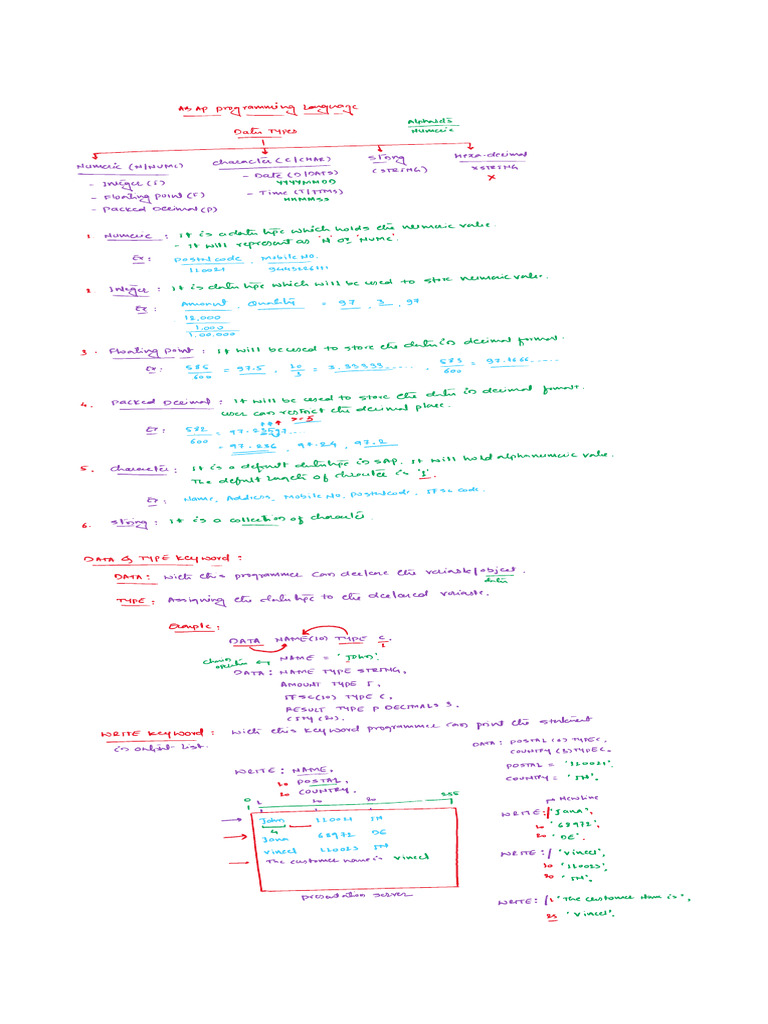 ABAP programming Language
Alphabets
Numeric
Data Types
Numeric (N/NUMC)
- Integer (I)
- Floating point (F)
- Packed Decimal (P)
character (C/CHAR)
- Date (D/DATS)
YYYYMMDD
- Time (T/TIMS)
HHMMSS
String
(STRING)
Hexa-decimal
XSTRING
x
1. Numeric : It is a data type which holds the numeric value.
- It will represent as 'N' or 'NUMC'.
Ex: Postal code, Mobile No.
110021
2. Integer : It is data type which will be used to store numeric value.
Ex: Amount, Quality = 97, 3, 97
18,000
1,000
1,00,000
3. Floating point : It will be used to store the data in decimal format.
Ex: 585/600 = 97.5, 10/3 = 3.33333....., 583/600 = 97.1666.....
4. Packed Decimal : It will be used to store the data in decimal format.
user can restrict the decimal place.
Ex: 582/600
= 97.236, 97.24, 97.2
5. Character : It is a default data type in SAP. It will hold alphanumeric value.
The default length of character is '1'.
Ex: Name, Address, Mobile No, postal code, IFSC code.
6. String : It is a collection of character.
DATA & TYPE Keyword :
DATA : With this programmer can declare the variable/object.
data
TYPE : Assigning the data type to the declared variable.
Example :
DATA NAME(10) TYPE C.
NAME = 'John'.
DATA : NAME TYPE STRING,
AMOUNT TYPE I,
IFSC(10) TYPE C,
RESULT TYPE P DECIMALS 3.
CITY(20).
WRITE Keyword : With this keyword programmer can print the statement
in output list.
DATA : POSTAL(6) TYPE C,
COUNTRY(3) TYPE C.
POSTAL = '110021'.
COUNTRY = 'IN'.
WRITE : NAME,
10 POSTAL,
20 COUNTRY.
0 1 10 20 255
John 110021 IN
4
Jana 68972 DE
vincel 110023 IN
The customer name is vincel
presentation server
Newline
WRITE :/ 'Jana',
10 '68972',
20 'DE'.
WRITE :/ 'vincel',
10 '110023',
20 'IN'.
WRITE :/1 'The customer Name is',
25 'vincel'.